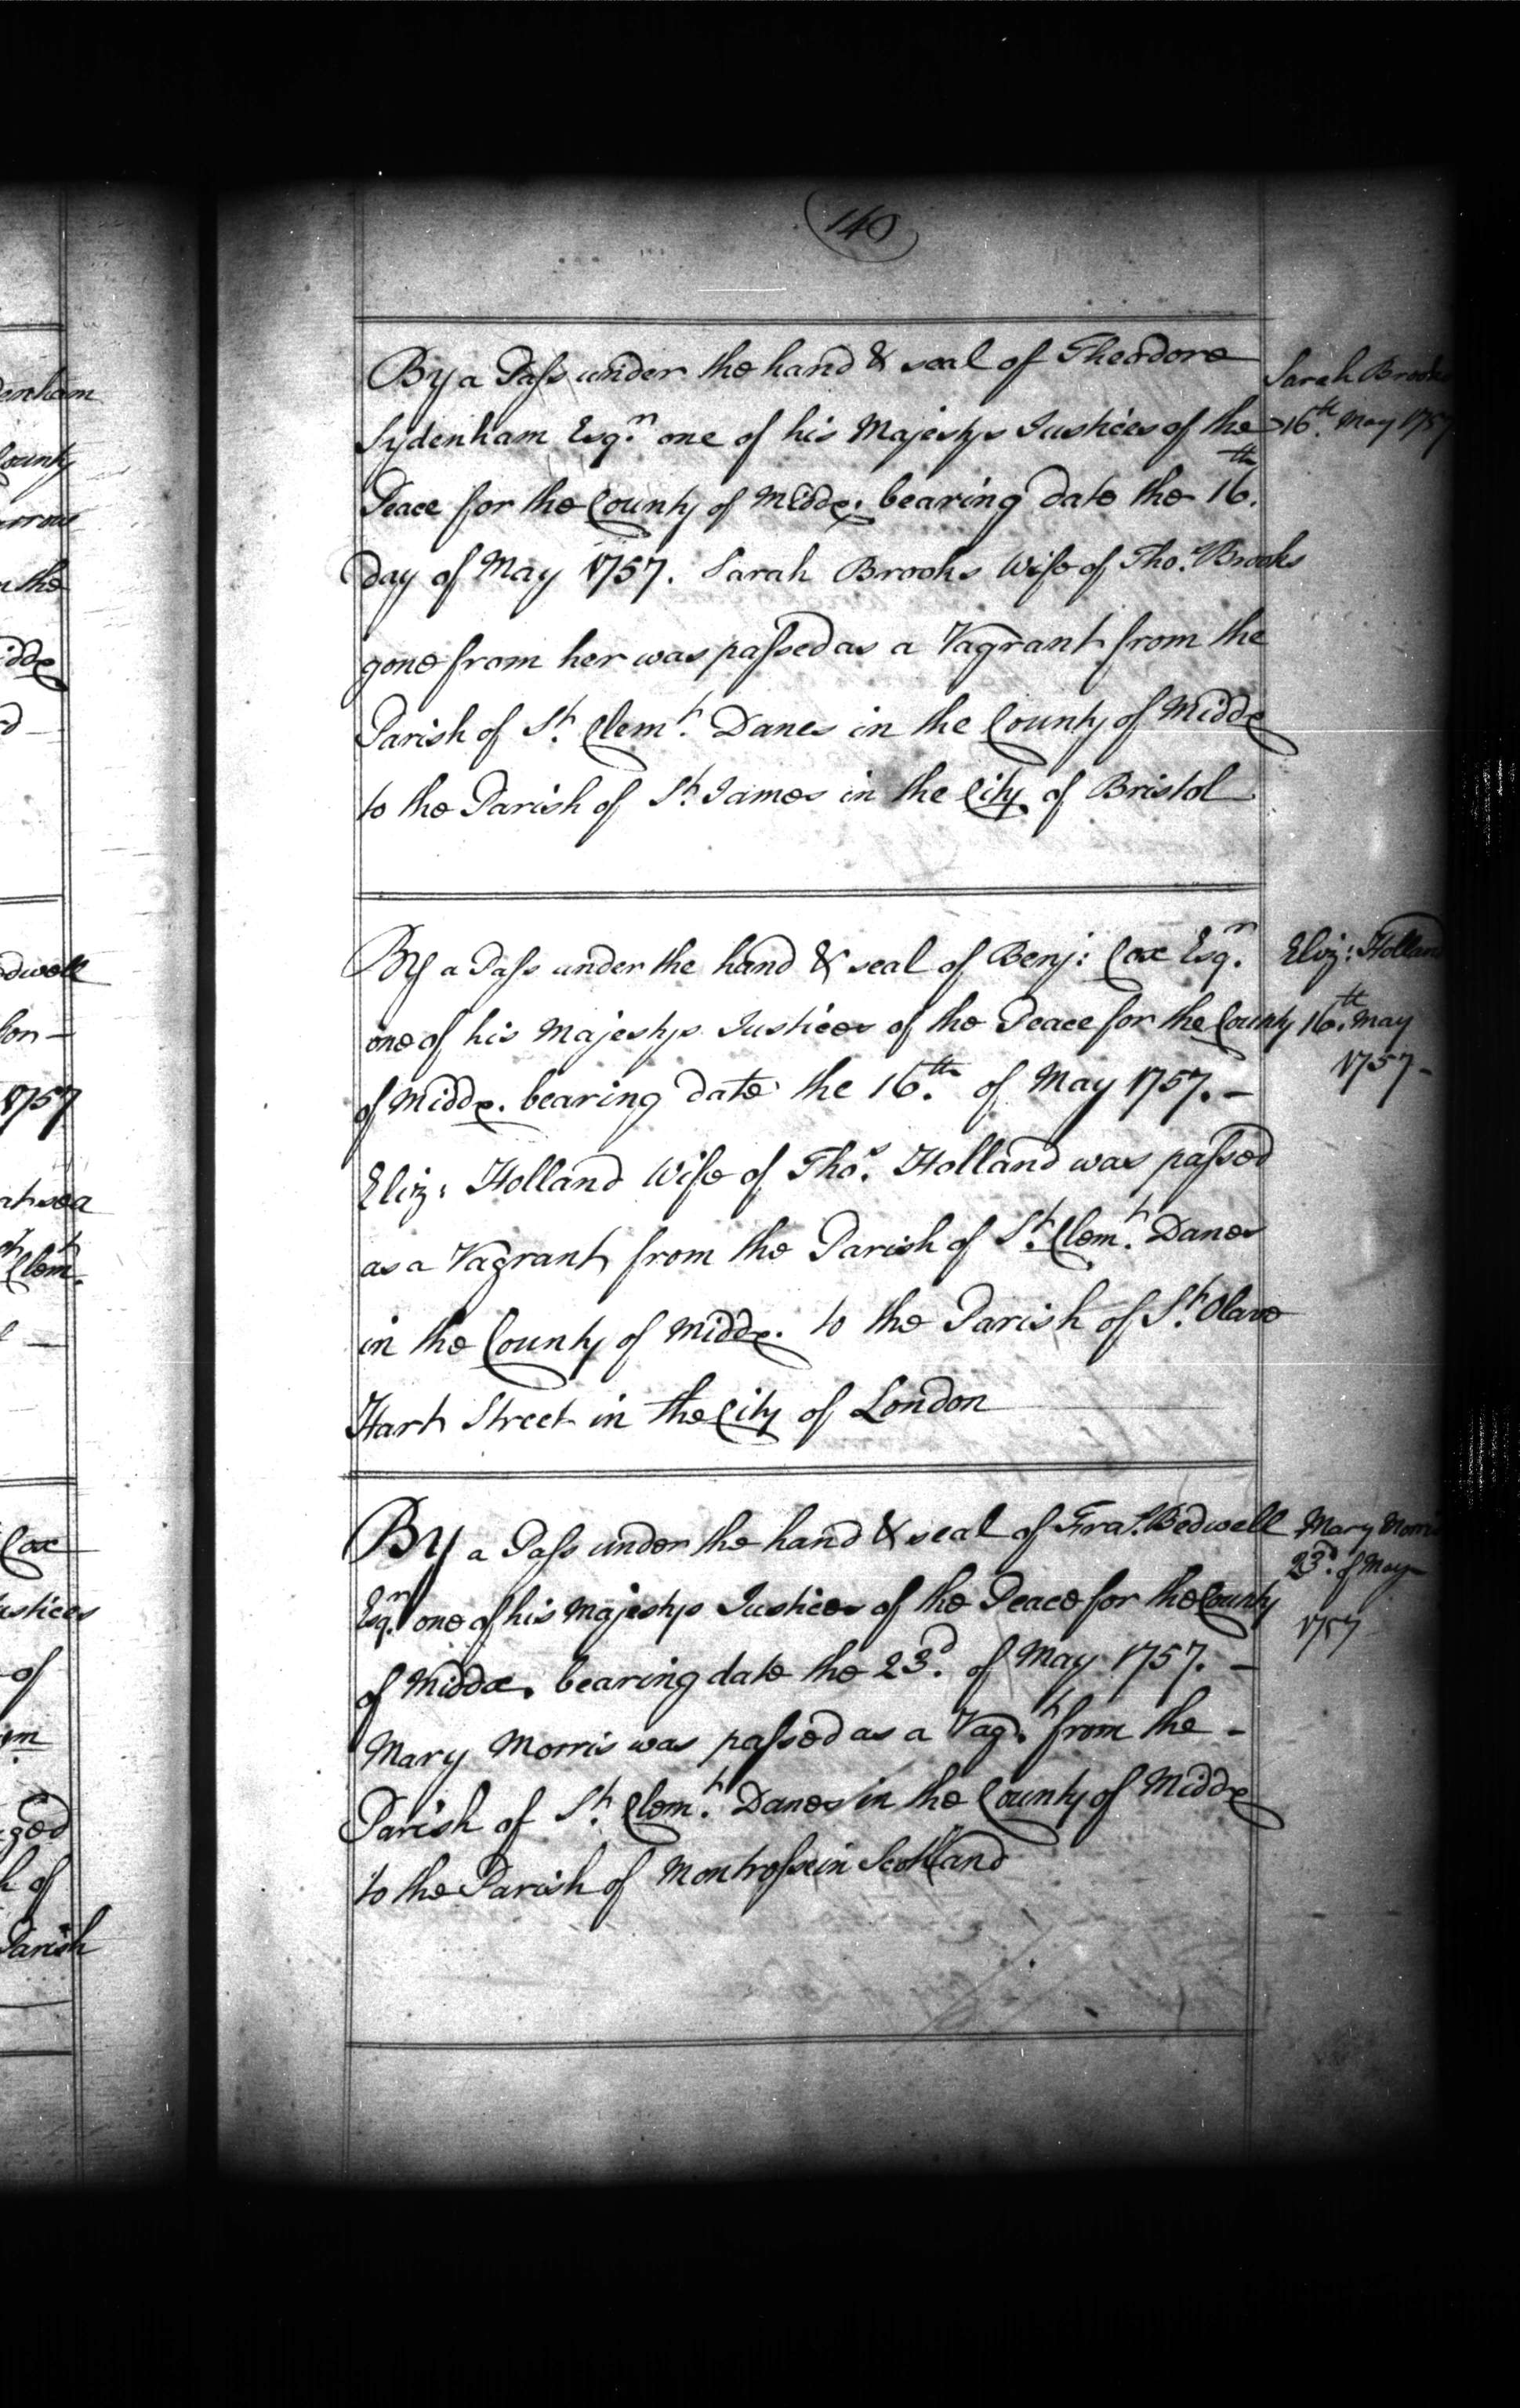 140
By a Pass under the hand & seal of Theodore
Sydenham Esqr. one of his Majestys Justices of the
Peace for the County of Middx. bearing date the 16th.
day of May 1757. Sarah Brooks Wife of Thos. Brooks
gone from her was passed as a Vagrant from the
Parish of St. Clemt. Danes in the County of Middx
to the Parish of St. James in the City of Bristol
Sarah Brooks
16th. May 1757
By a Pass under the hand & seal of Benj: Cox Esqr.
one of his Majestys Justices of the Peace for the County
of Middx. bearing date the 16th. of May 1757. –
Eliz: Holland Wife of Thos. Holland was passed
as a Vagrant from the Parish of St. Clemt. Danes
in the County of Middx. to the Parish of St. Olave
Hart Street in the City of London
Eliz: Holland
16th. May
1757 –
By a Pass under the hand & seal of Fras. Bedwell
Esqr. one of his Majestys Justices of the Peace for the County
of Middx. bearing date the 23d. of May 1757. –
Mary Morris was passed as a Vagt. from the –
Parish of St. Clemt. Danes in the County of Middx
to the Parish of Montrosse in Scotland
Mary Morris
23d. of May
1757